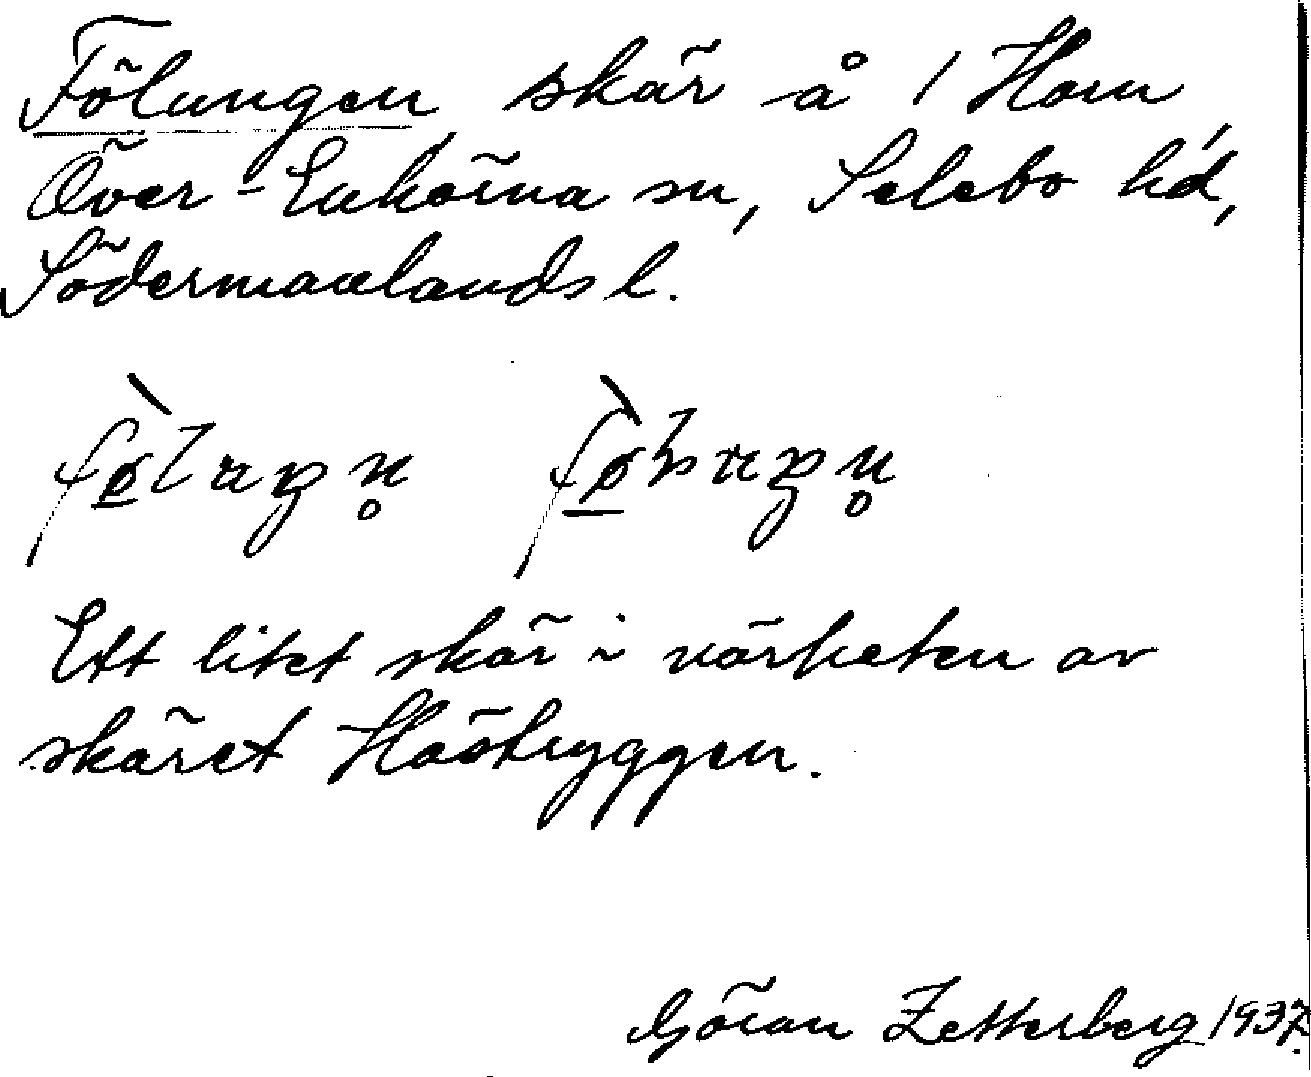 Fölungen skär å 1 Horn
Över-Enhörna sn, Selebo hd,
Södermanlands l.
Ett litet skär i närheten av
skäret Hästryggen.
Göran Zetterberg 1937.